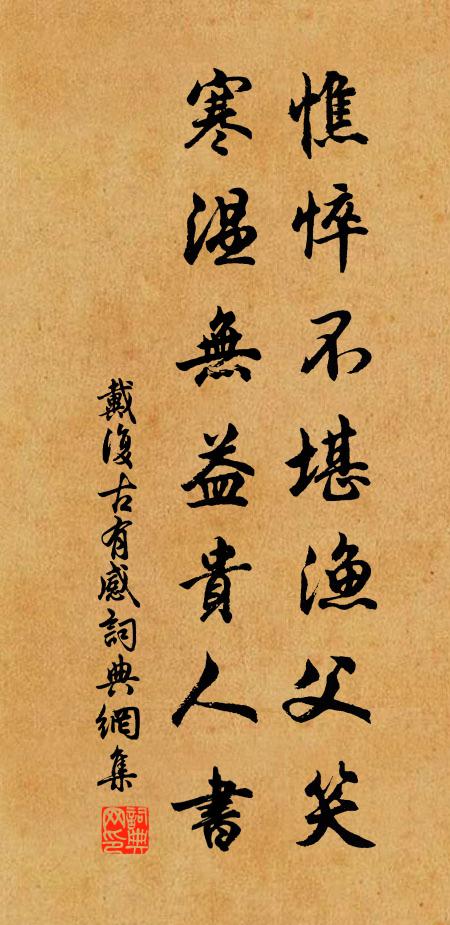 憔悴不堪漁父笑
寒温無益貴人書
戴復古有感詞典網集
詞典網印